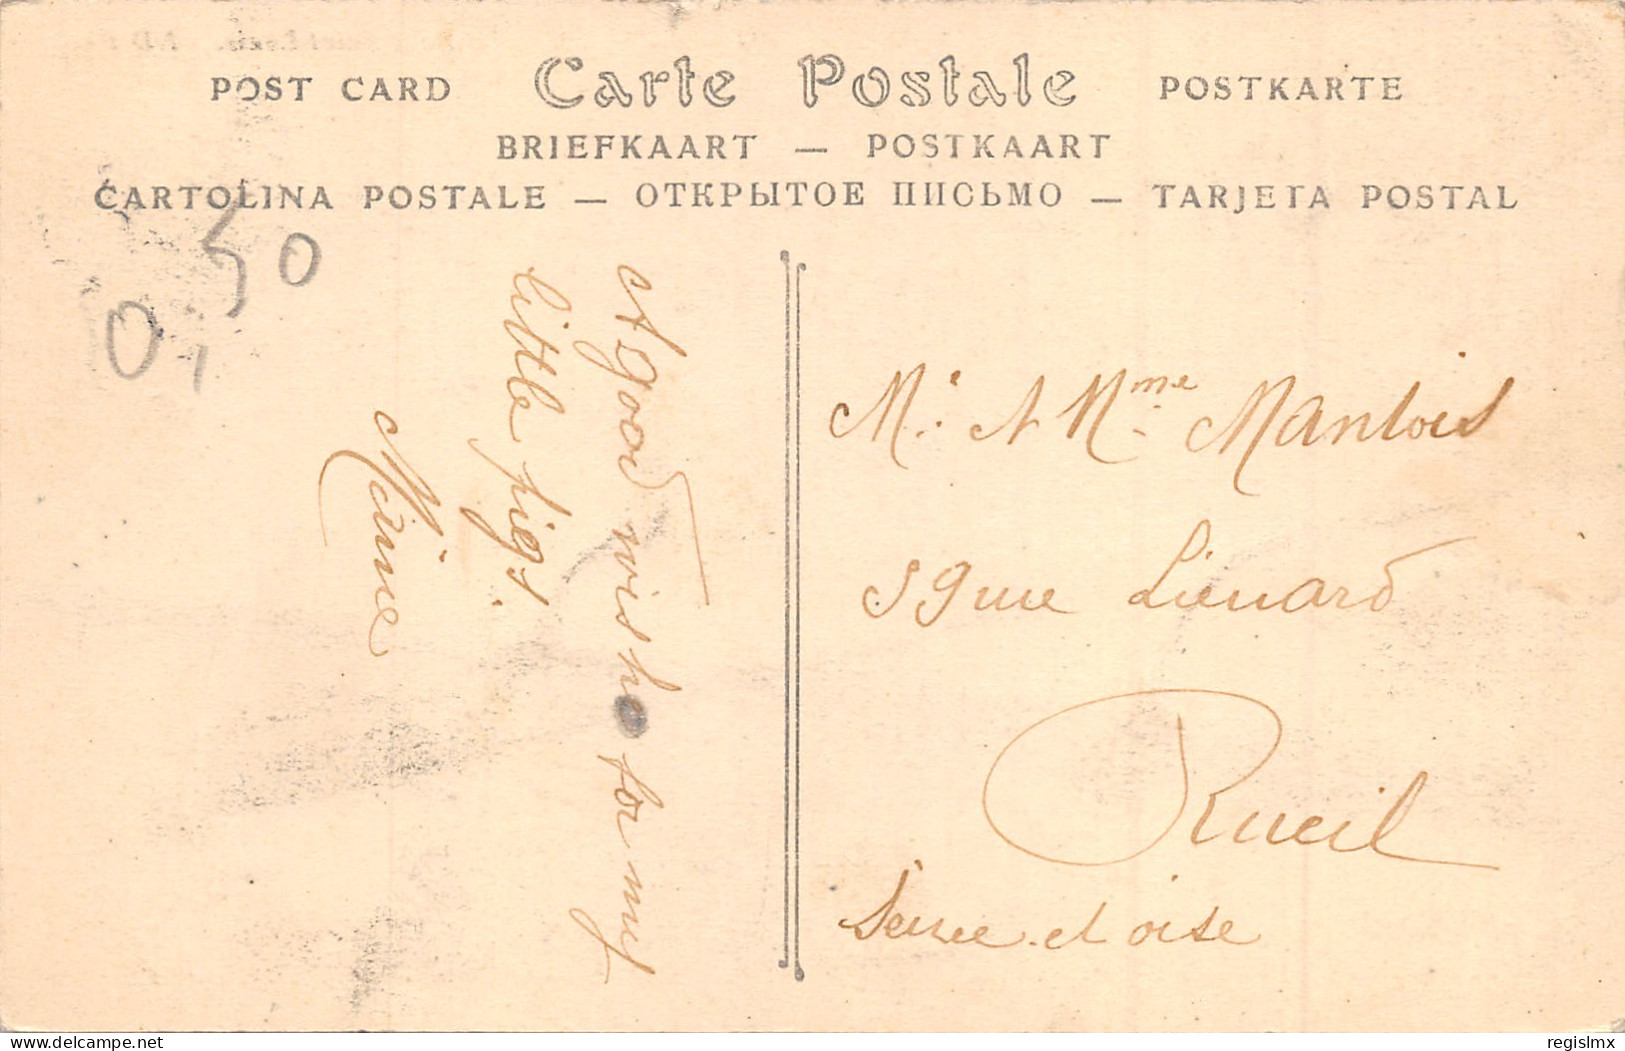 POST CARD Carte Postale POSTKARTE
BRIEFKAART — POSTKAART
CARTOLINA POSTALE — ОТКРЫТОЕ ПИСЬМО — TARJETA POSTAL
0,50
A good wish for my
little pigs.
M. et Mme Mantois
59 rue Lienard
Rueil
Seine et oise
delcampe.net
regislmx